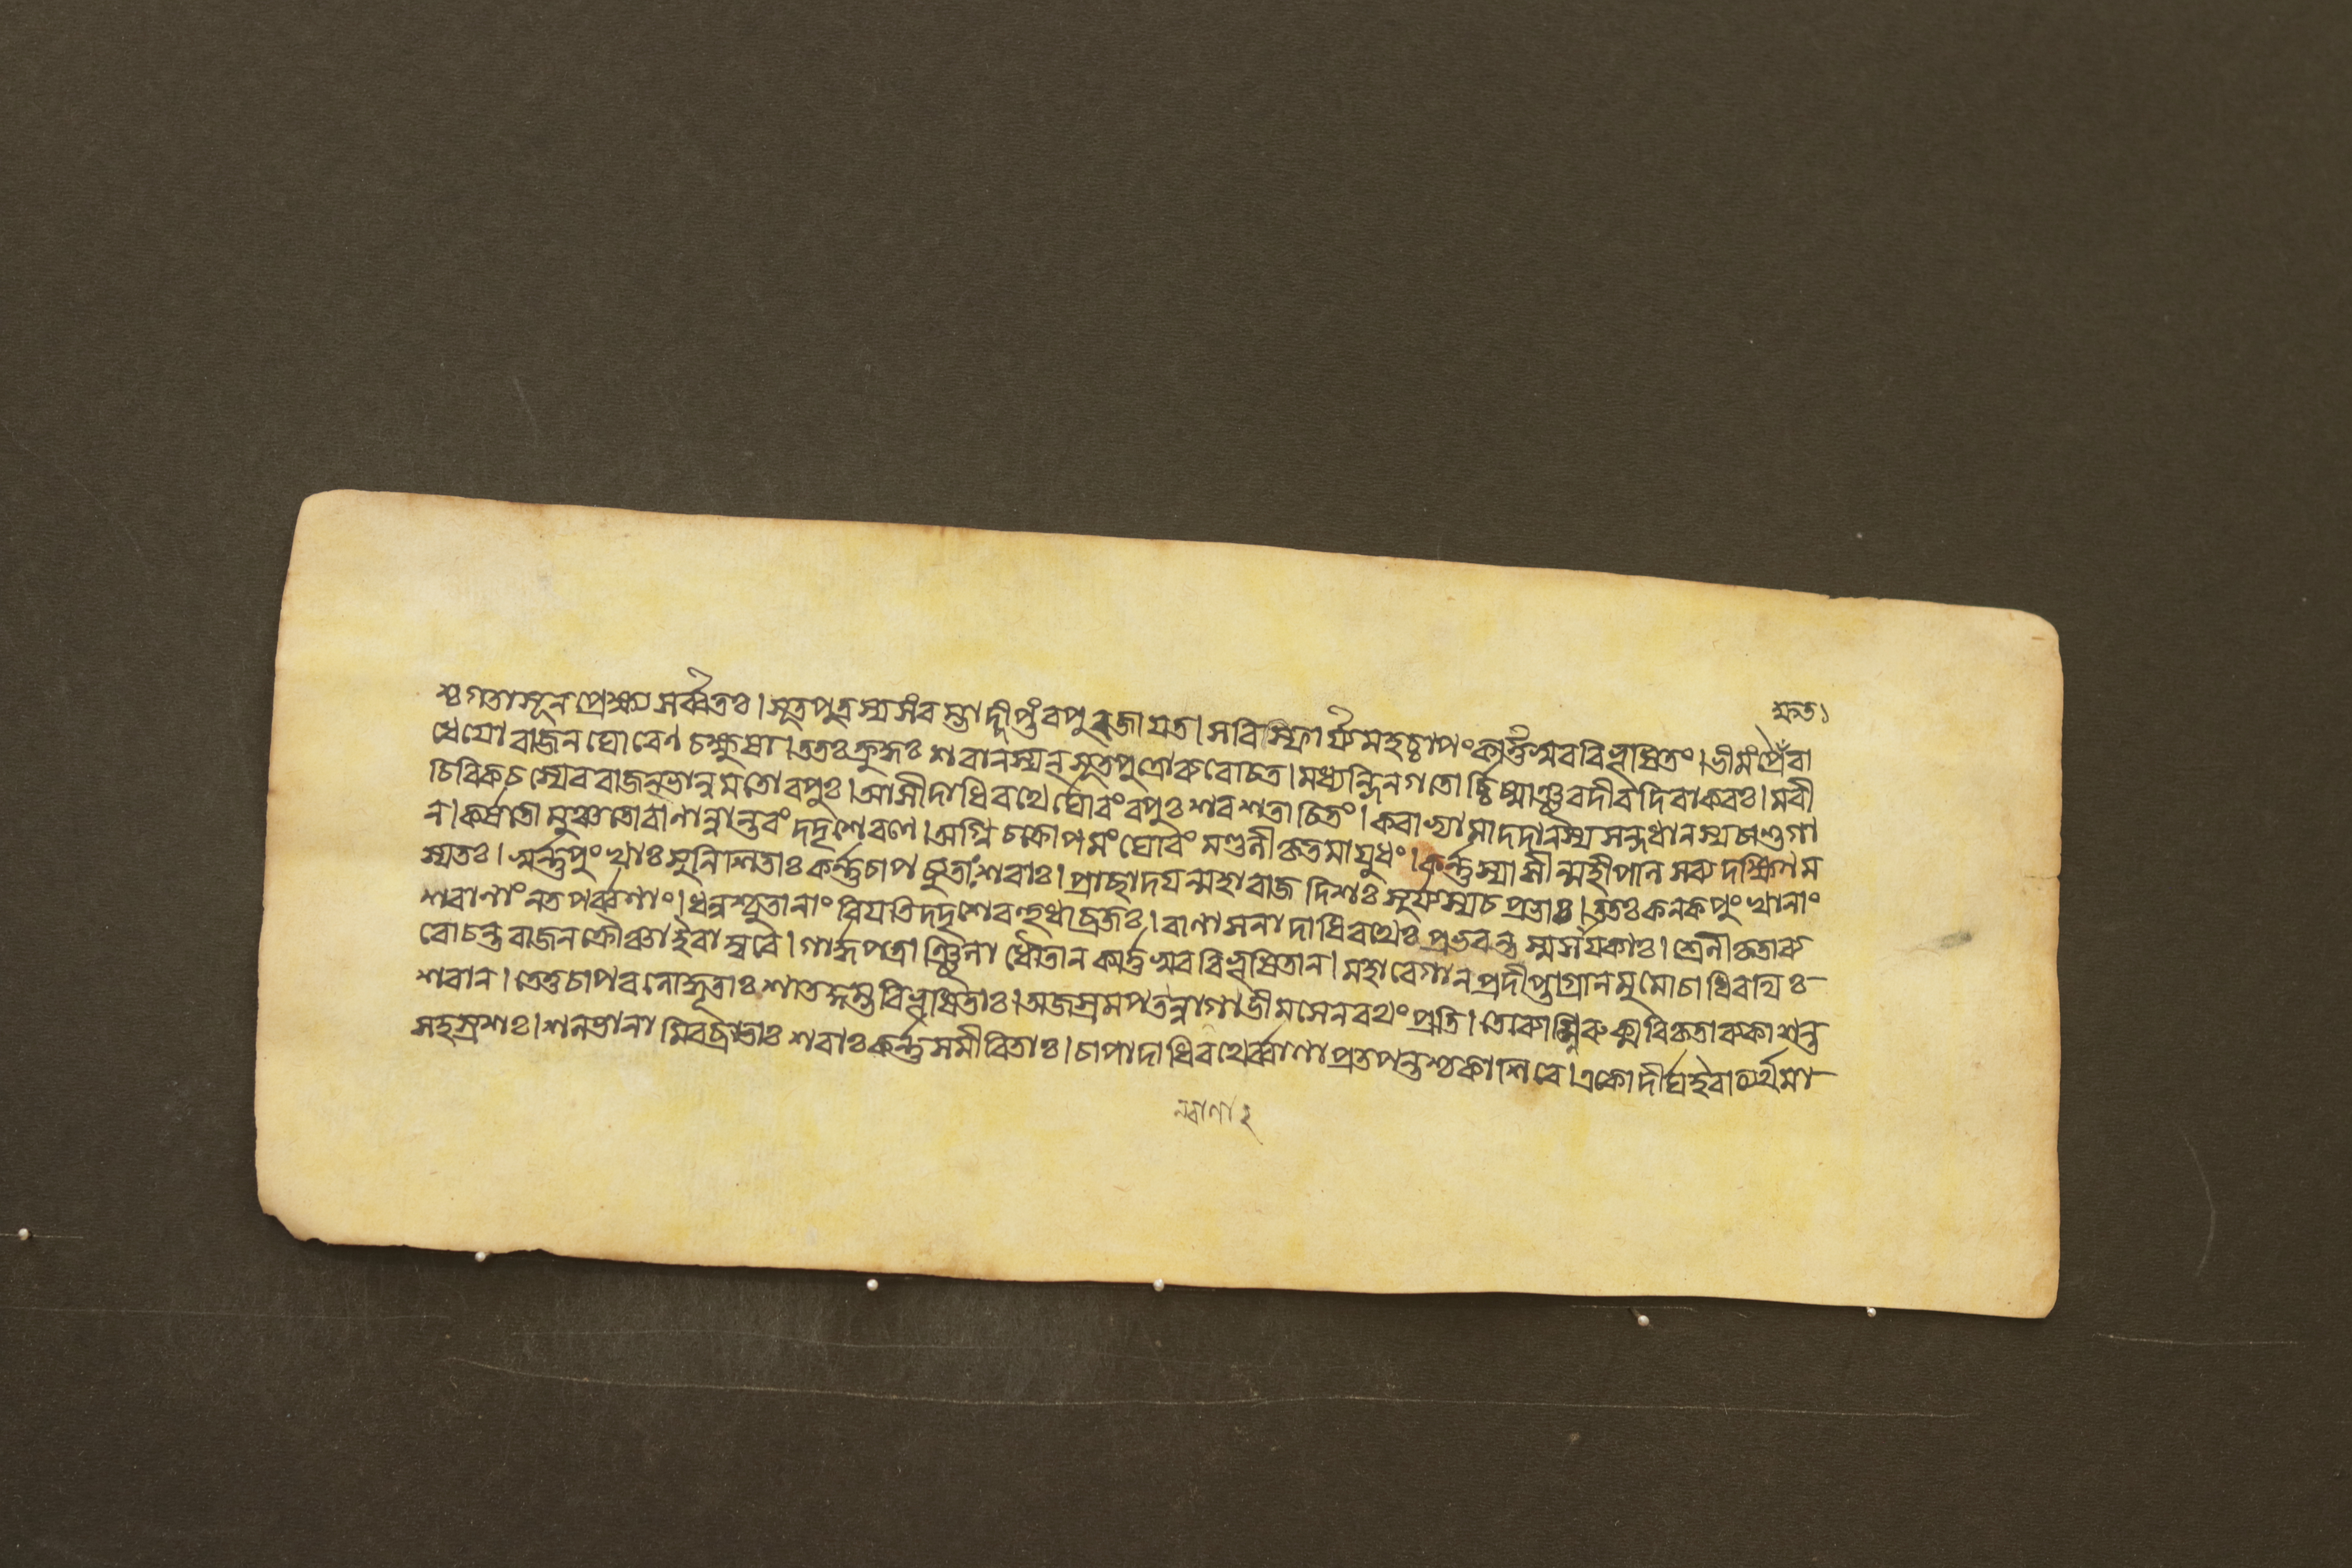 ক্ষত১
শ্চগতাসূনপ্রেক্ষ্য সর্ব্বতঃ। সূতপুত্রস্যসংরম্ভাদ্দীপ্তংবপুরজাযত। সবিস্ফার্য্যমহচ্চাপংকার্ত্তস্বরবিভূষিতং। ভীমংপ্রৈরা
ধেযোরাজনঘোরেণচক্ষুষা। ততঃক্রুদ্ধঃ শরানস্যন্সূতপুত্রোব্যরোচত। মধ্যন্দিনগতোর্চ্চিষ্মাঞ্ছরদীবদিবাকরঃ। মরী
চিবিকচস্যেবরাজন্ভানুমতোবপুঃ। আসীদাধিরথের্ঘোরংবপুঃশরশতাচিতং। করাভ্যামাদদানস্যসন্দধানস্যচাশুগা
ন। কর্ষতোমুঞ্চতোবাণান্নান্তরংদদৃশেরণে। অগ্নিচক্রোপমংঘোরংমণ্ডলীকৃতমাযুধং। কর্ন্নস্যাসীন্মহীপালসব্যদক্ষিণম
স্যতঃ। স্বর্ন্নপুংখাঃসুনিশিতাঃকর্ন্নচাপচ্যুতাঃশরাঃ। প্রাচ্ছাদযন্মহারাজদিশঃসূর্য্যস্যচপ্রভাঃ। ততঃকনকপুংখানাং
শরাণাংনতপর্ব্বণাং। ধনুশ্চ্যুতানাংবিযতিদদৃশেবহুধাব্রজঃ। বাণাসনাদাধিরথেঃপ্রভবন্তস্মসাযকাঃ। শ্রেনীকৃতাব্য
রোচন্তরাজনক্রৌঞ্চাইবাম্বরে। গার্দ্ধপত্রাঞ্ছিলাধৌতানকার্ত্তস্বরবিভূষিতান। মহাবেগানপ্রদীপ্তাগ্রানমুমোচাধিরথিঃ
শরান। তেতুচাপবলোদ্ধূতাঃশাতকুম্ভবিভূষিতাঃ। অজস্রমপতন্বাণাভীমসেনরথংপ্রতি। তেব্যোম্নিরুক্মবিকৃতাব্যকাশন্ত
সহস্রশঃ। শলভানামিবব্রাতাঃশরাঃকর্ন্নসমীরিতাঃ। চাপাদাধিরথের্ব্বাণাপ্রতপন্তশ্চকাশিরে। একোদীর্ঘইবাত্যর্থমা